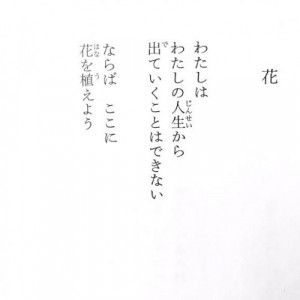 花
わたしは
わたしの人生から
出ていくことはできない
ならば　ここに
花を植えよう